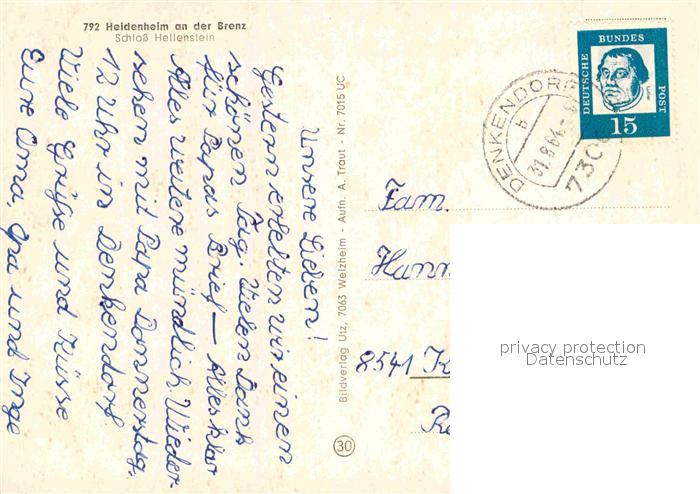 792 Heidenheim an der Brenz
Schloß Hellenstein
Unsere Lieben!
Gestern erlebten wir einen
schönen Tag. Vielen Dank
für Papas Brief – Alles klar
Alles weitere mündlich. Wieder-
sehen mit Papa Donnerstag,
12 Uhr in Denkendorf.
Viele Grüße und Küsse
Eure Oma, Opa und Inge
Bildverlag Utz, 7063 Welzheim - Aufn. A. Traut - Nr. 7015 UC
30
DEUTSCHE
BUNDES
POST
15
DENKENDORF
b
7306
Fam.
Hann
8541 K
Re
privacy protection
Datenschutz